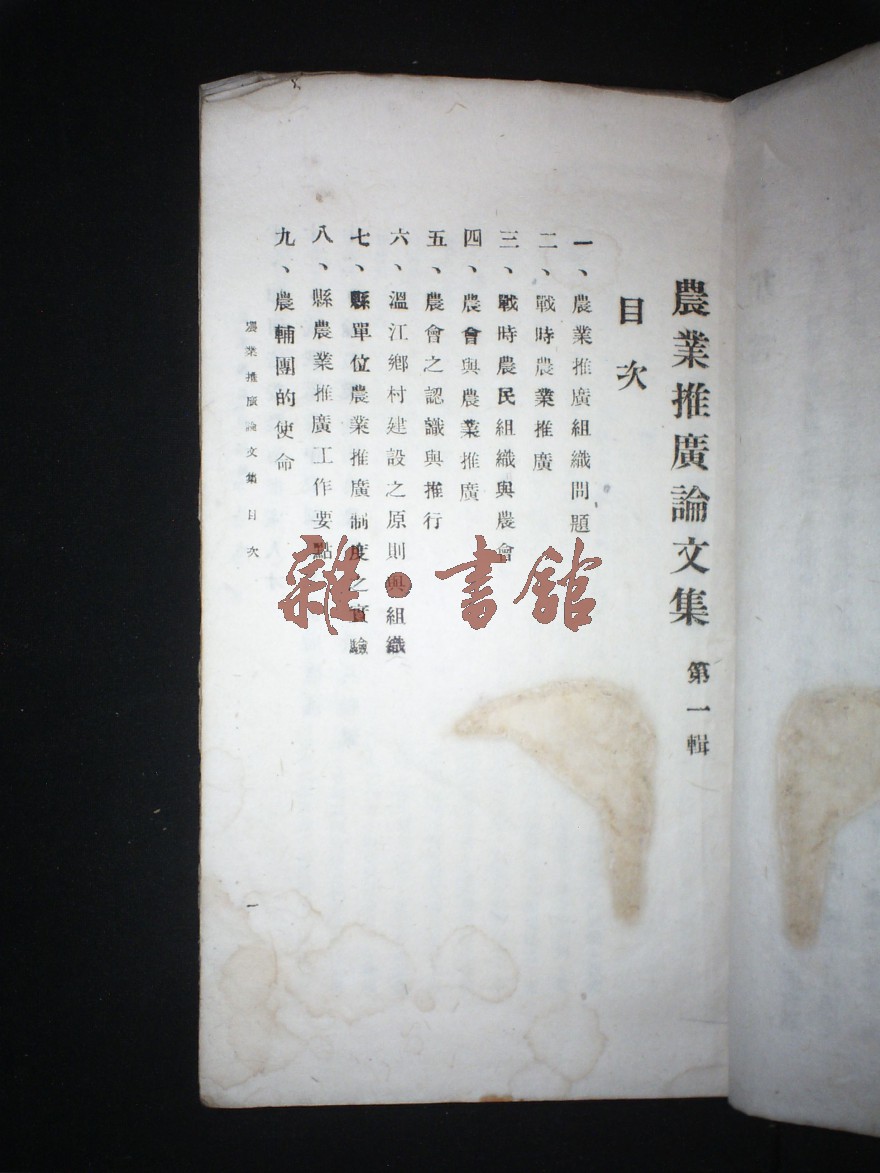 農業推廣論文集 第一輯
目次
一、農業推廣組織問題
二、戰時農業推廣
三、戰時農民組織與農會
四、農會與農業推廣
五、農會之認識與推行
六、溫江鄉村建設之原則與組織
七、縣單位農業推廣制度之實驗
八、縣農業推廣工作要點
九、農輔團的使命
農業推廣論文集 目次
一
雜·書館